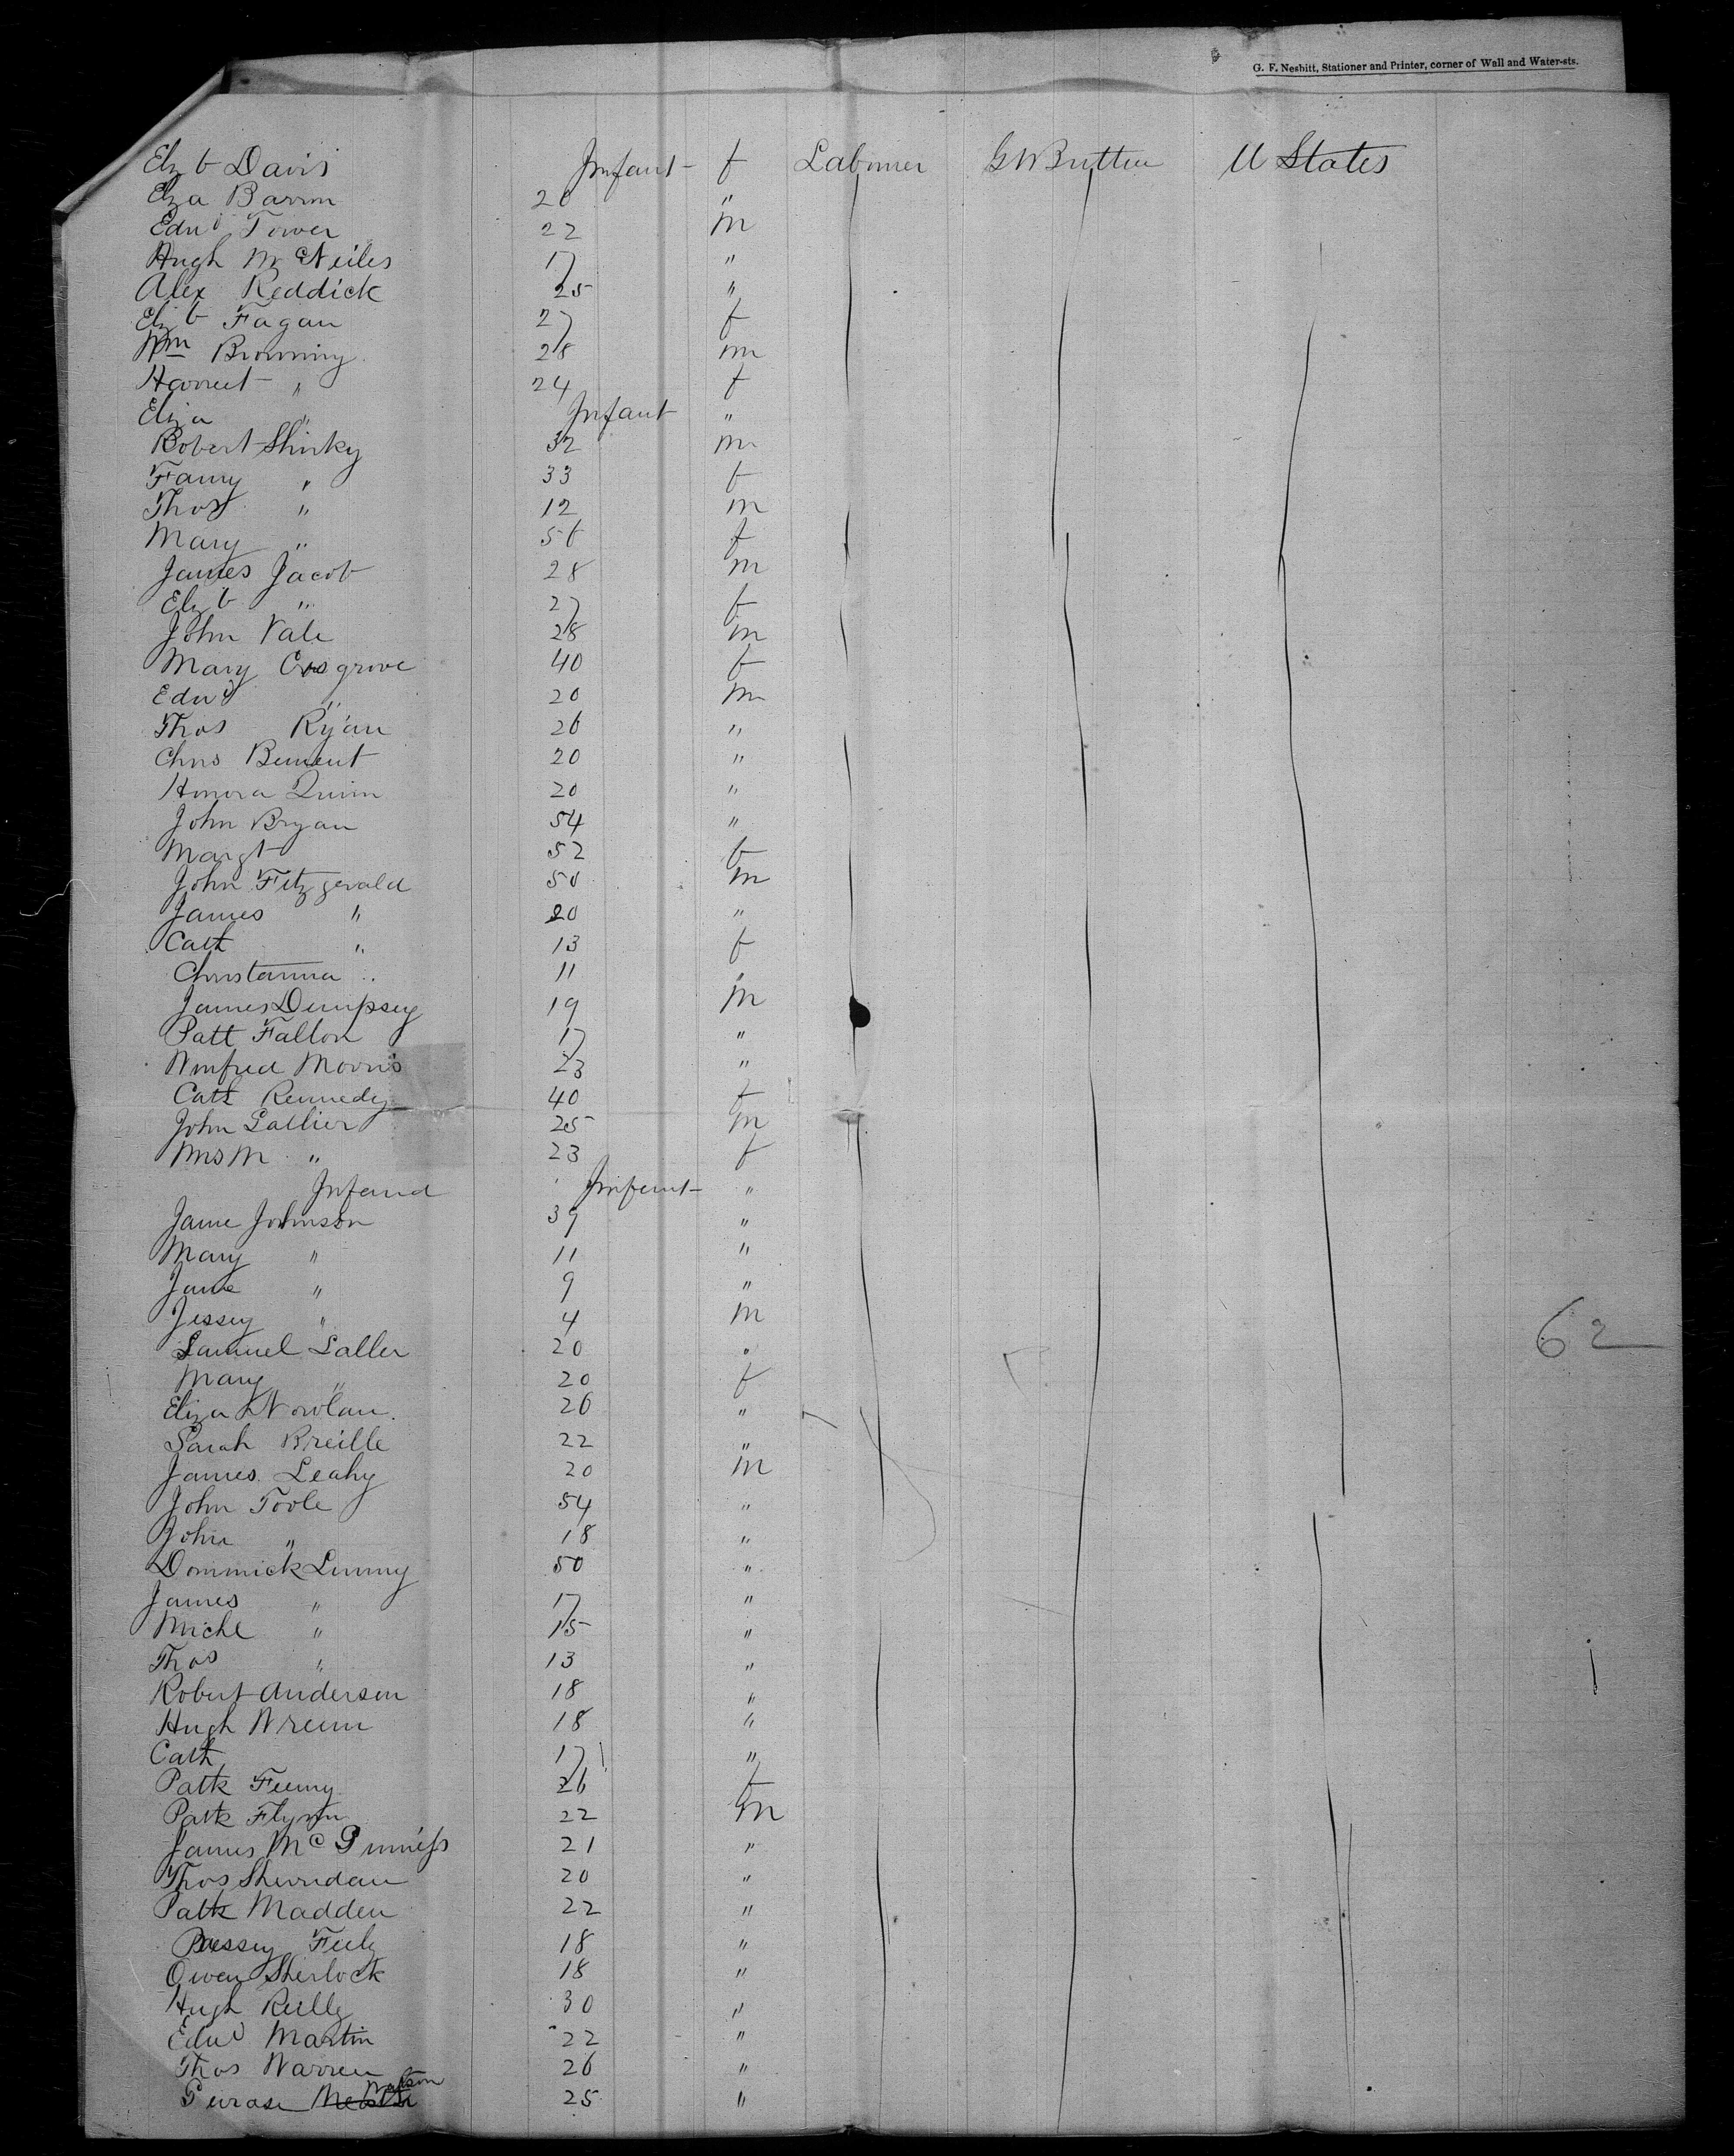 G. F. Nesbitt, Stationer and Printer, corner of Wall and Water-sts.
Elzb Davis Infant f Labourer Gt Britten U States
Elza Barron 20 "
Edwd Tower 22 m
Hugh Mc Neiles 17 "
Alex Reddick 25 "
Elizb Fagan 27 f
Wm Browning 28 m
Harriet " 24 f
Eliza " Infant "
Robert Shirky 32 m
Fanny " 33 f
Thos " 12 m
Mary " 56 f
James Jacob 28 m
Elzb " 27 f
John Vale 28 m
Mary Cosgrove 40 f
Edwd " 20 m
Thos Ryan 26 "
Chris Bennent 20 "
Honora Quinn 20 "
John Bryan 54 "
Margt 52 f
John Fitzgerald 50 m
James " 20 "
Cath " 13 f
Christanna " 11 "
James Dempsey 19 m
Patt Fallon 17 "
Winfred Morris 23 "
Cath Kennedy 40 f
John Lallier 25 m
Mrs M " 23 f
Infand Infant "
Jane Johnson 39 "
Mary " 11 "
Jane " 9 "
Jessey " 4 m
Samuel Laller 20 "
62
Mary " 20 f
Eliza Nowlan 26 "
Sarah Breille 22 "
James Leahy 20 m
John Toole 54 "
John " 18 "
Dommick Lunny 50 "
James " 17 "
Michl " 15 "
Thos " 13 "
Robert Anderson 18 "
Hugh Wrenn 18 "
Cath 17 "
Patk Feeny 26 f
Patk Flynn 22 m
James Mc Ginniss 21 "
Thos Sherridan 20 "
Patk Madden 22 "
Bessey Feely 18 "
Owen Sherlock 18 "
Hugh Reilly 30 "
Edwd Martin 22 "
Thos Warren 26 "
Watson 25 "